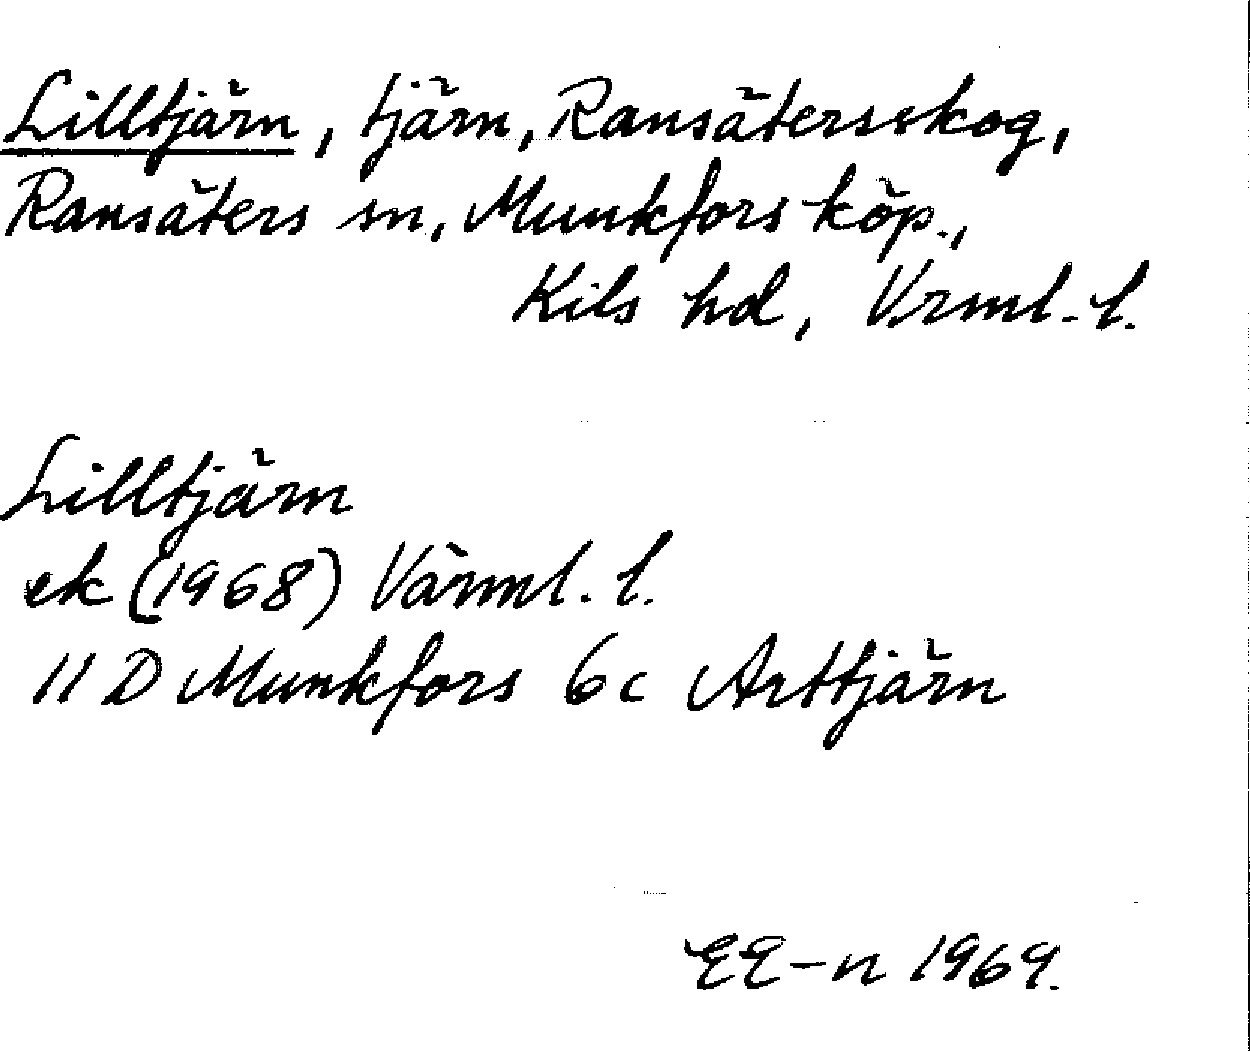 Lilltjärn, tjärn, Ransätersskog,
Ransäters sn, Munkfors köp.,
Kils hd, Vrml. l.
Lilltjärn
ek (1968) Värml. l.
11 D Munkfors 6c Arttjärn
EE-n 1969.